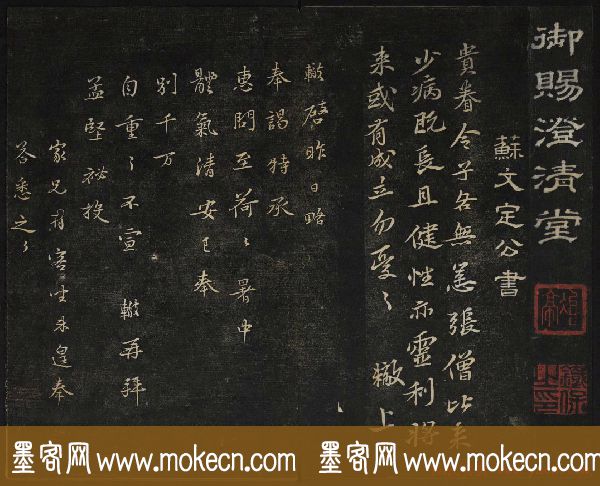 御賜澄清堂
蘇文定公書
貴眷令子各無恙張僧比來
少病既長且健性亦靈利將
來或有成立勿憂〻 轍上
轍啓昨日略
奉謁特承
惠問至荷〻暑中
體氣清安已奉
別千万
自重〻不宣 轍再拜
孟堅祕校
家兄有客坐未遑奉
答悉之〻
墨客网 www.mokecn.com 墨客网 www.mokecn.com